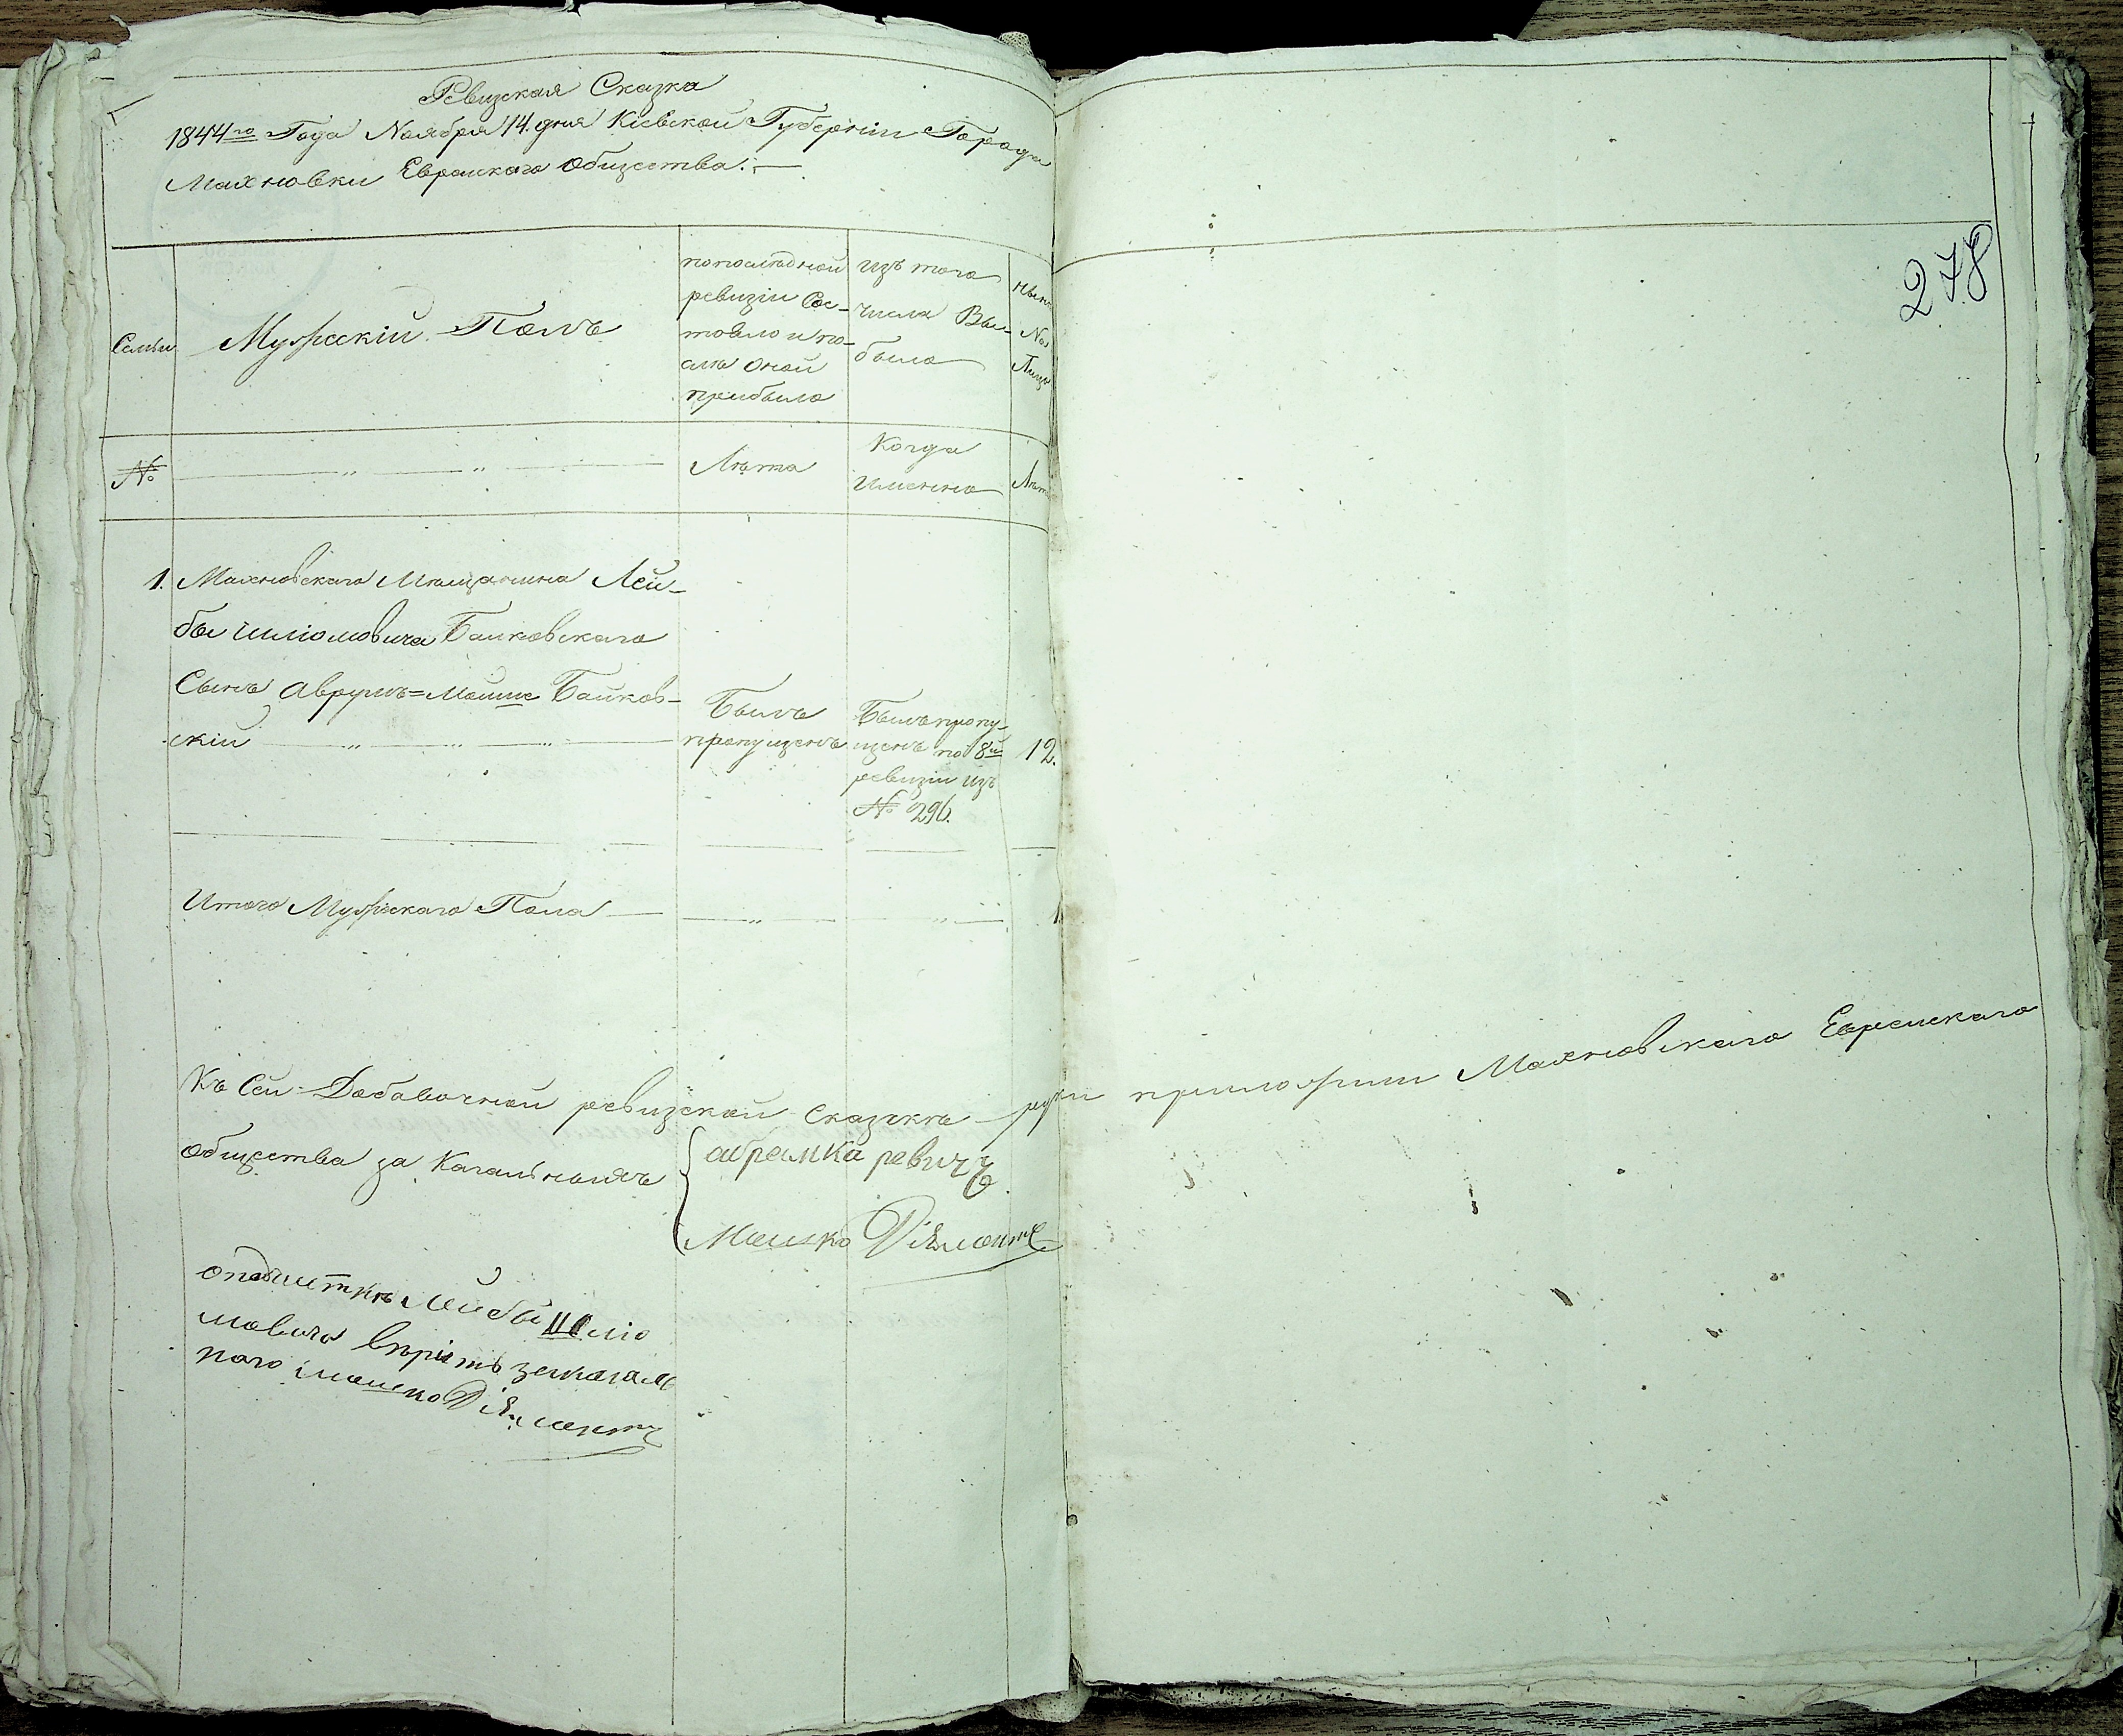 Ревизская Сказка
1844го Года Ноября 14. дня Кіевской Губерніи Города
Махновки Еврейскаго Общества.
278
Семьи
Мужескій Полъ
по последней
ревизіи Сос-
тояло и по-
слѣ оной
прибыло
изъ того
числа Вы-
было
№
Лѣта
Когда
именно
1. Махновскаго Мещанина Лей-
бы Шліомовича Байковскаго
Сынъ Аврумъ=Мошко Байков-
скій
Былъ
пропущенъ
Былъ пропу-
щенъ по 8й
ревизіи изъ
№ 296.
12.
Итого Мужескаго Пола
1
Къ Сей Добавочной ревизской сказкѣ руки приложили Махновскаго Еврейскаго
Общества за Кагальныхъ
абрамка ревичъ
Мошко Діямонтъ
Лейбы Шліо
мовича вѣритъ
Мошко Діямонтъ